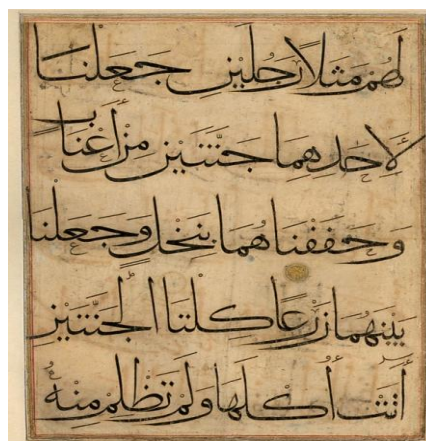 لَهُمْ مَثَلًا رَجُلَيْنِ جَعَلْنَا
لِأَحَدِهِمَا جَنَّتَيْنِ مِنْ أَعْنَابٍ
وَحَفَفْنَاهُمَا بِنَخْلٍ وَجَعَلْنَا
بَيْنَهُمَا زَرْعًا كِلْتَا الْجَنَّتَيْنِ
آتَتْ أُكُلَهَا وَلَمْ تَظْلِمْ مِنْهُ